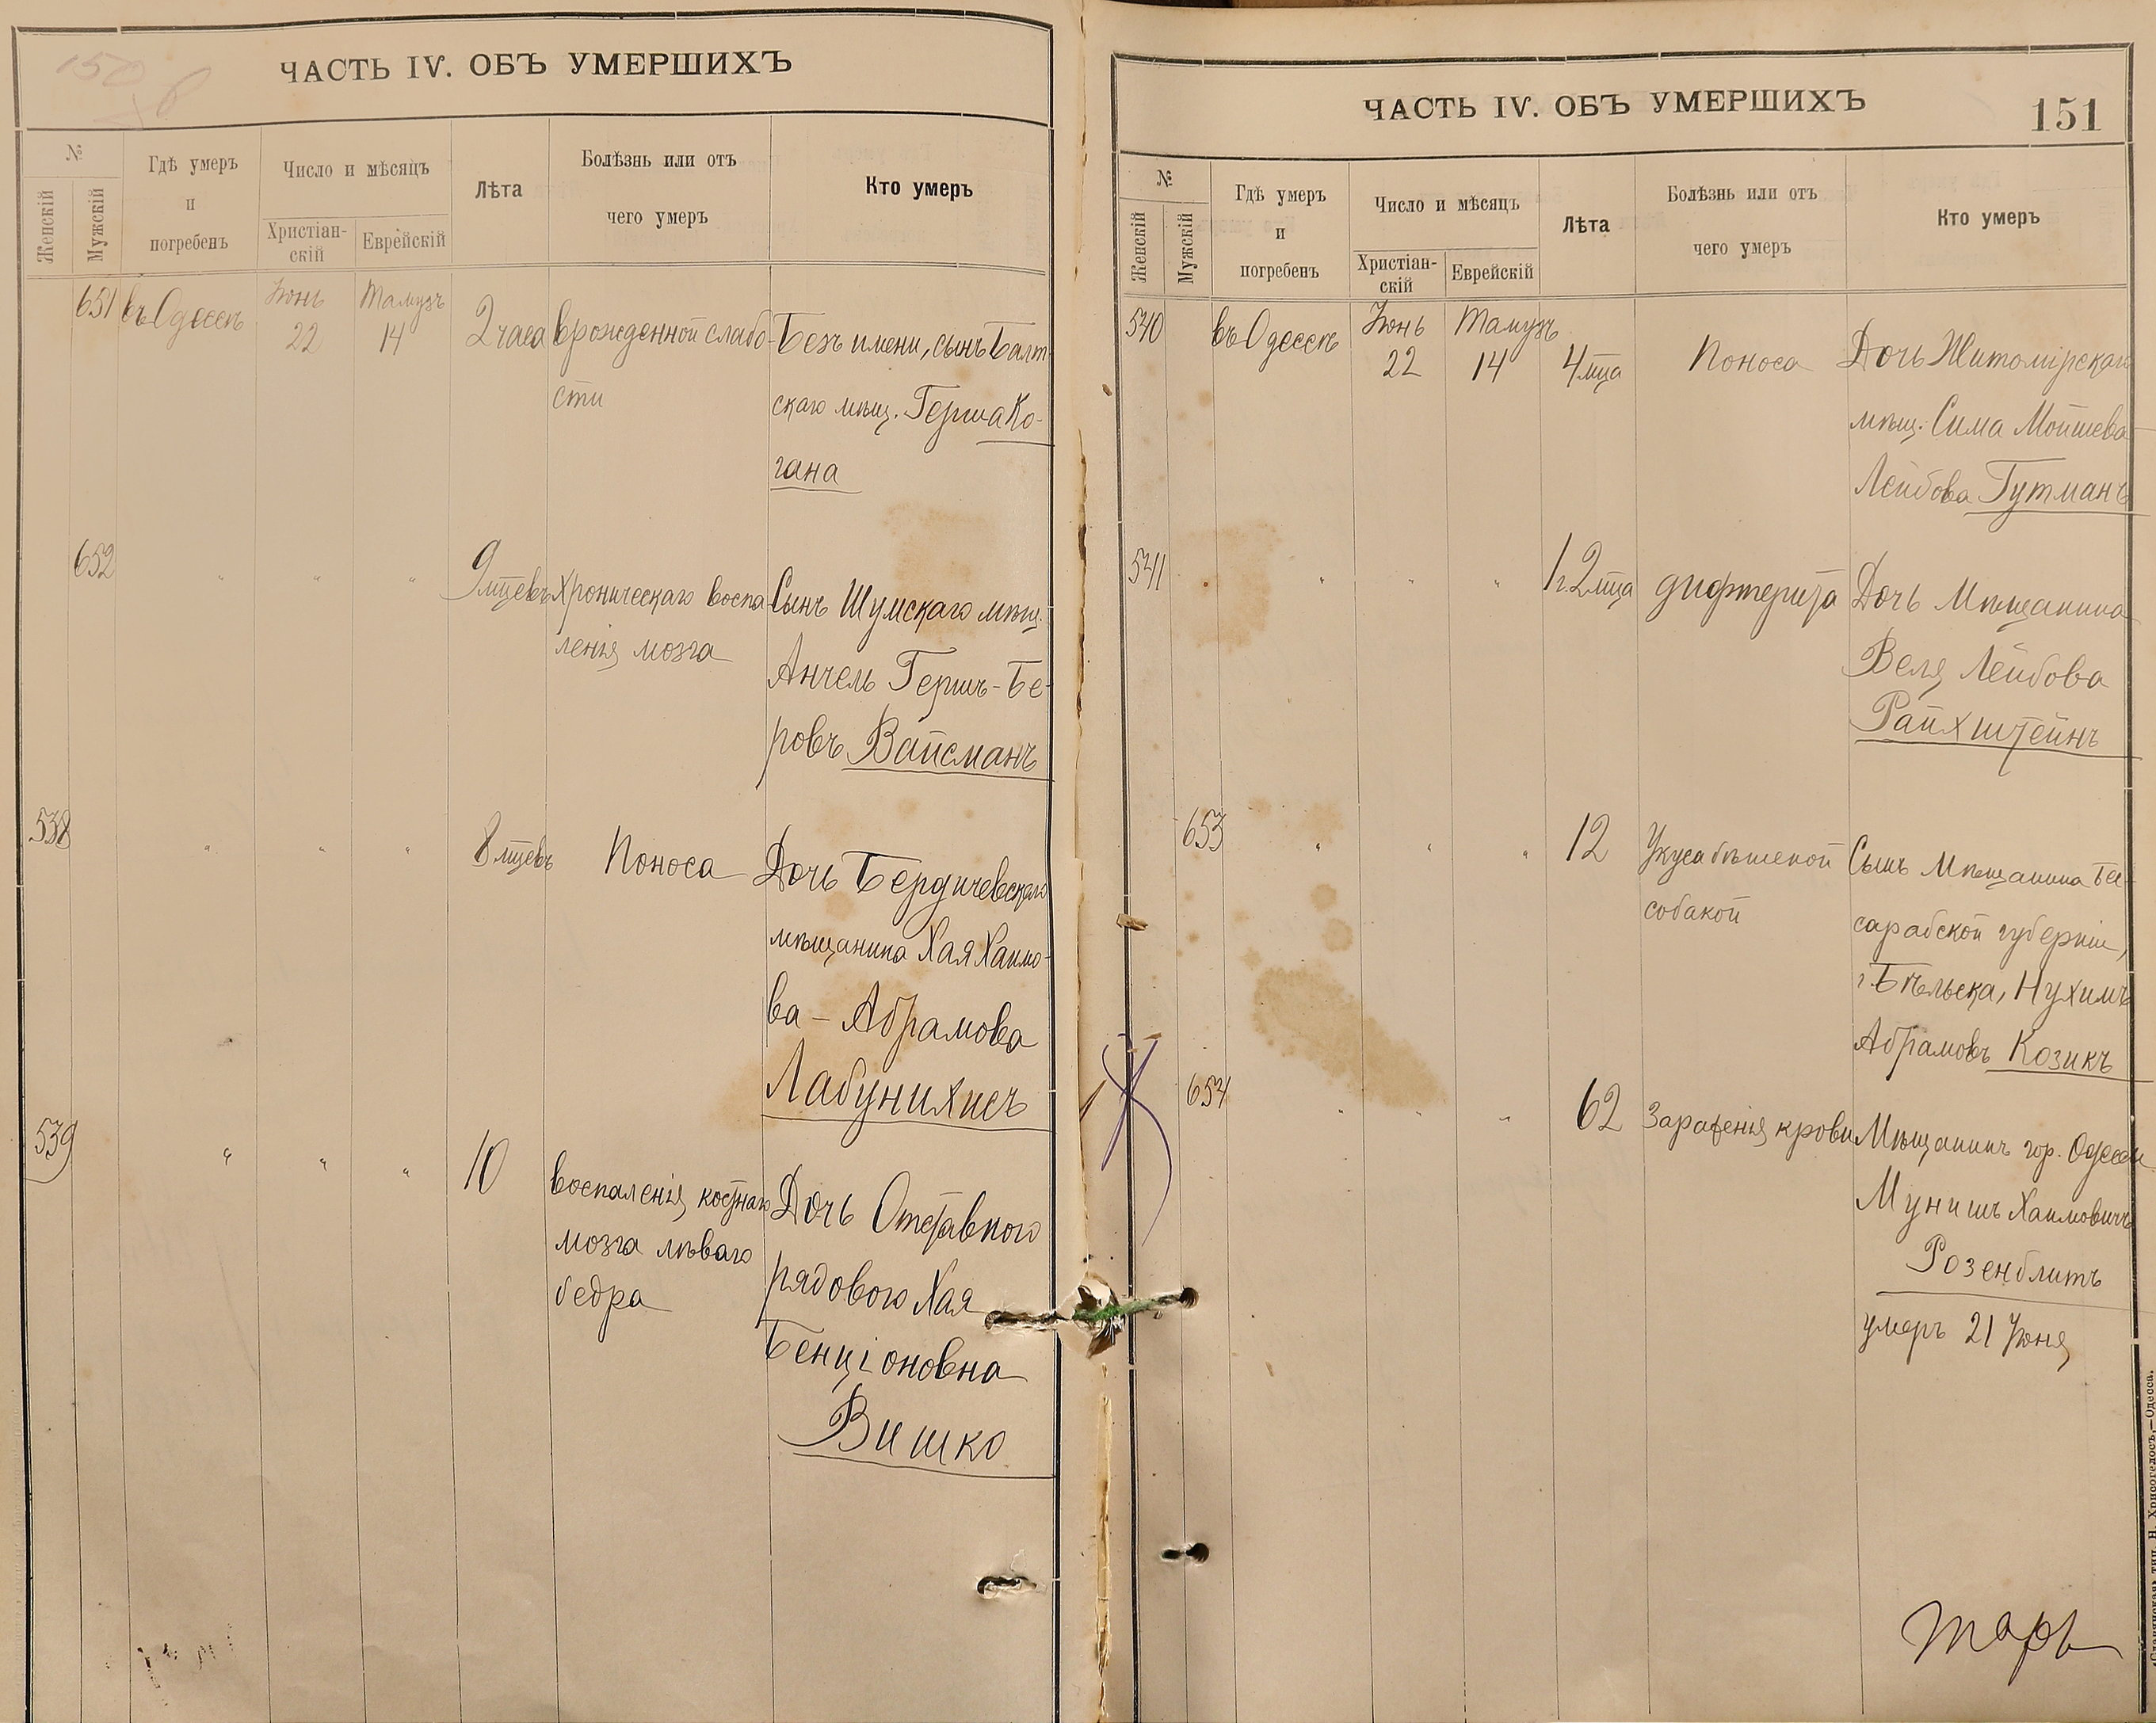 ЧАСТЬ IV. ОБЪ УМЕРШИХЪ
№
Женскій
Мужскій
Гдѣ умеръ
и
погребенъ
Число и мѣсяцъ
Христіан-
скій
Еврейскій
Лѣта
Болѣзнь или отъ
чего умеръ
Кто умеръ
651 въ Одессѣ Іюнь 22 Тамузъ 14 2 часа врожденной слабо- Безъ имени, сынъ Балт-
сти скаго мѣщ. Герша Ко-
гана
652 " " " 9 мцевъ Хроническаго воспа- Сынъ Шумскаго мѣщ.
ленія мозга Анчель Гершъ-Бе-
ровъ Вайсманъ
538 " " " 8 мцевъ Поноса Дочь Бердичевскаго
мѣщанина Хая Хаимо-
ва - Абрамова
Лабунихисъ
539 " " " 10 воспаленія костнаго Дочь Отставного
мозга лѣваго рядового Хая
бедра Бенціоновна
Вишко
ЧАСТЬ IV. ОБЪ УМЕРШИХЪ
151
№
Женскій
Мужскій
Гдѣ умеръ
и
погребенъ
Число и мѣсяцъ
Христіан-
скій
Еврейскій
Лѣта
Болѣзнь или отъ
чего умеръ
Кто умеръ
540 въ Одессѣ Іюнь 22 Тамузъ 14 4 мца Поноса Дочь Житомірскаго
мѣщ. Сима Мойшева-
Лейбова Гутманъ
541 " " " 1 г. 2 мца дифтерита Дочь Мѣщанина
Веля Лейбова
Райхштейнъ
653 " " " 12 Укуса бѣшеной Сынъ Мѣщанина Бес-
собакой сарабской губерніи,
г. Бѣльска, Нухимъ
Абрамовъ Козикъ
654 " " " 62 Зараженія крови Мѣщанинъ гор. Одессы
Мунишъ Хаимовичъ
Розенблитъ
умеръ 21 Іюня
«Славянская» тип. Н. Хрисогелосъ,—Одесса.